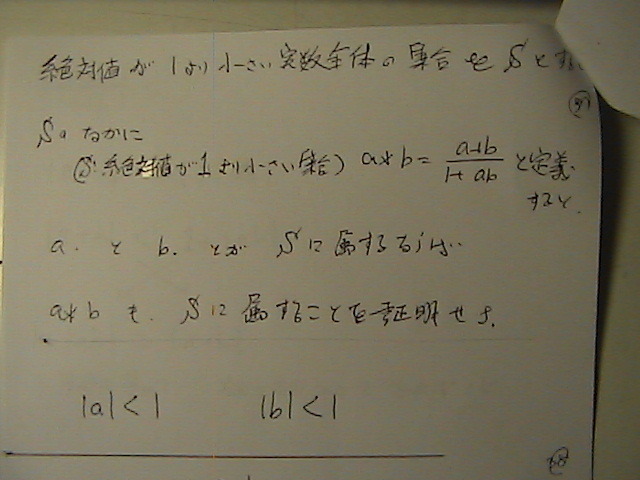 絶対値が1より小さい実数全体の集合をSとする
Sのなかに
(S:絶対値が1より小さい集合) a*b = \frac{a+b}{1+ab} と定義
すると、
a. と b. とが Sに属するならば
a*b も、Sに属することを証明せよ。
|a|<1 |b|<1